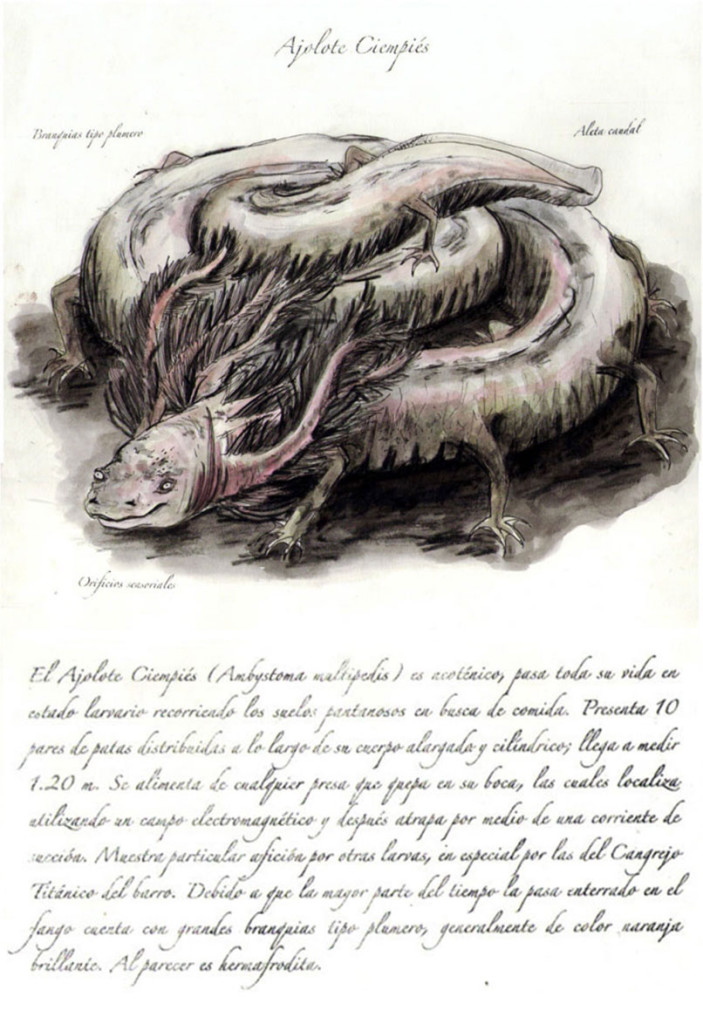 Ajolote Ciempiés
Branquias tipo plumero
Aleta caudal
Orificios sensoriales
El Ajolote Ciempiés (Ambystoma multipedis) es neoténico, pasa toda su vida en
estado larvario recorriendo los suelos pantanosos en busca de comida. Presenta 10
pares de patas distribuidas a lo largo de su cuerpo alargado y cilíndrico; llega a medir
1.20 m. Se alimenta de cualquier presa que quepa en su boca, las cuales localiza
utilizando un campo electromagnético y después atrapa por medio de una corriente de
succión. Muestra particular afición por otras larvas, en especial por las del Cangrejo
Titánico del barro. Debido a que la mayor parte del tiempo la pasa enterrado en el
fango cuenta con grandes branquias tipo plumero, generalmente de color naranja
brillante. Al parecer es hermafrodita.